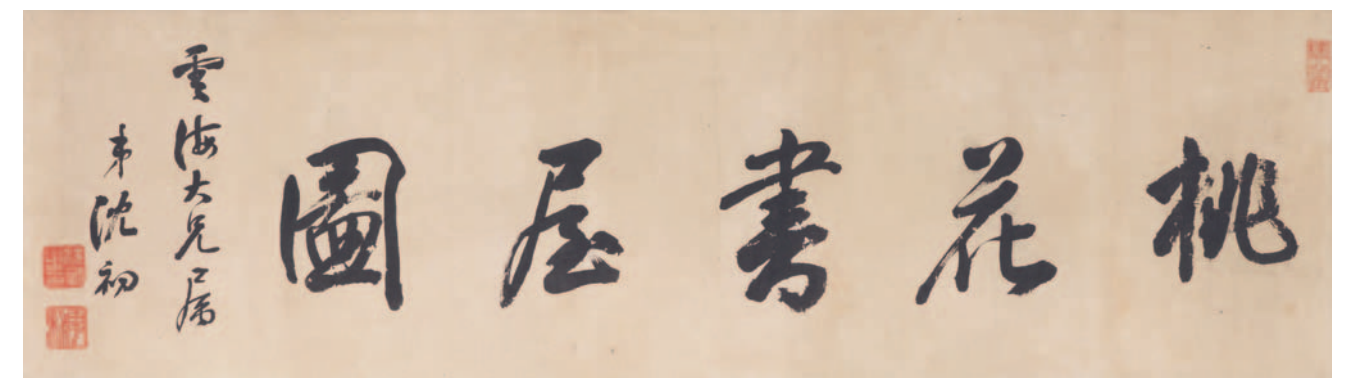 桃花書屋圖
雲海大兄屬
弟沈初